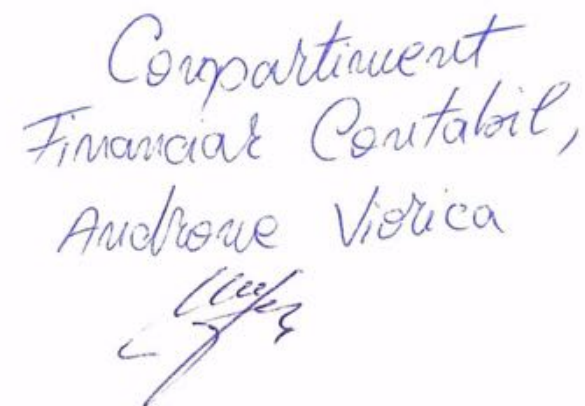 Compartiment
Financiar Contabil,
Androne Viorica